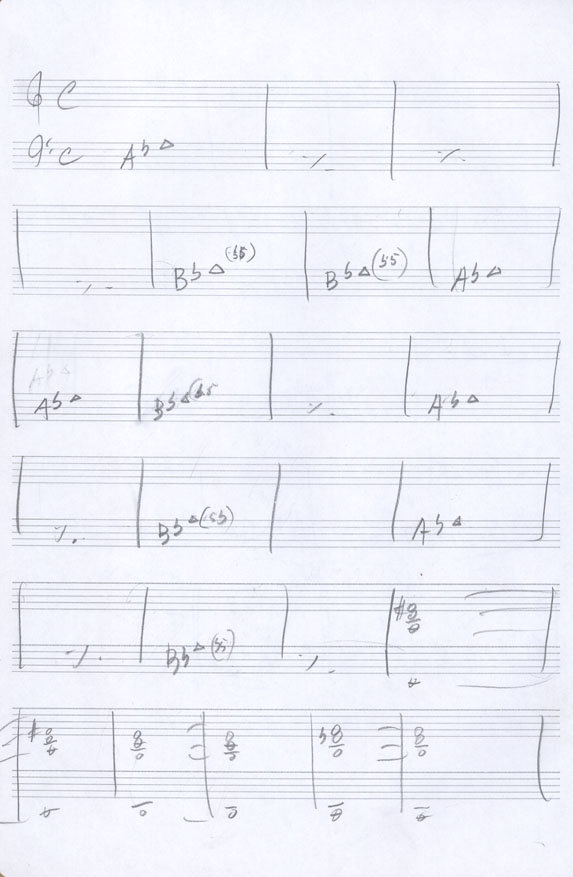 C
C A♭△
B♭△(♭5) B♭△(♭5) A♭△
A♭△
A♭△ B♭△(♭5 A♭△
B♭△(♭5) A♭△
B♭△(♭5)